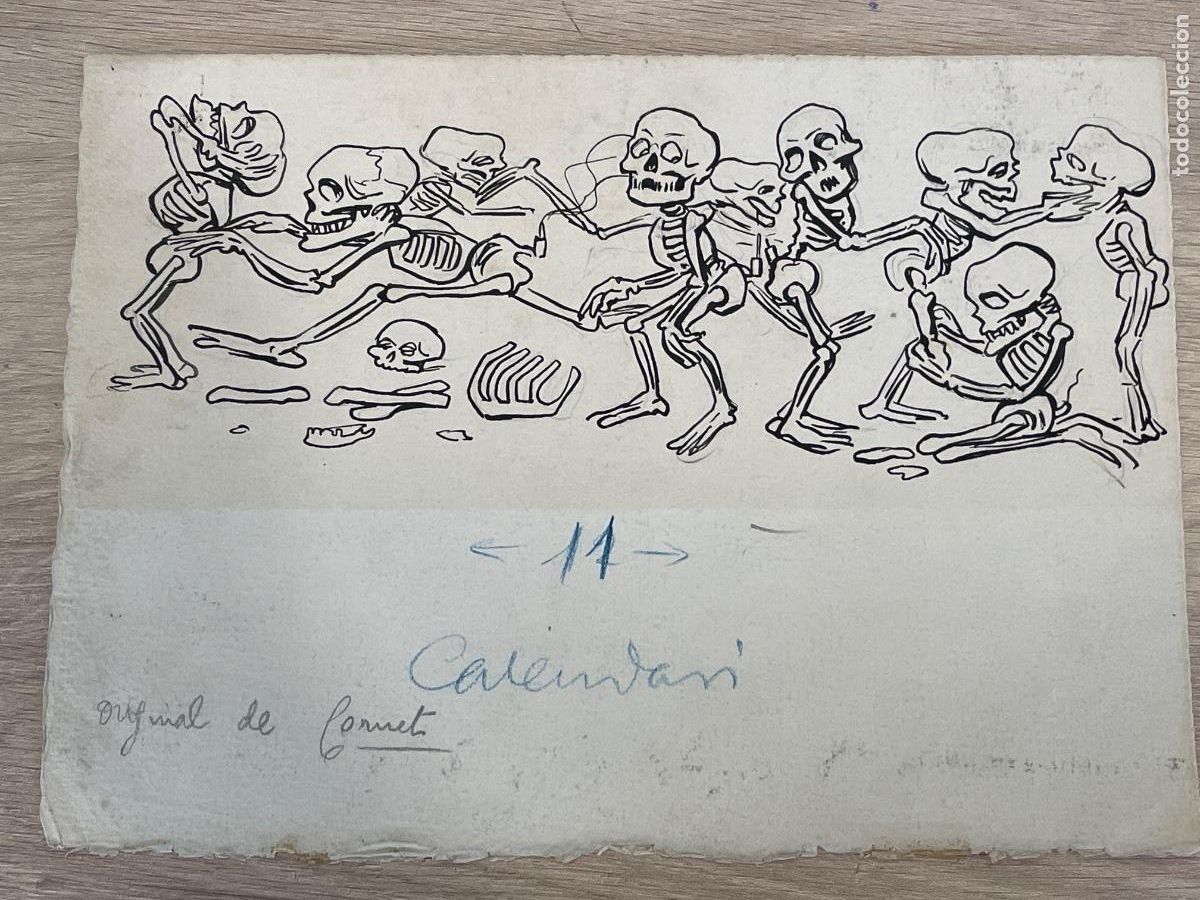 todocoleccion
← 11 →
Calendari
original de Cornet